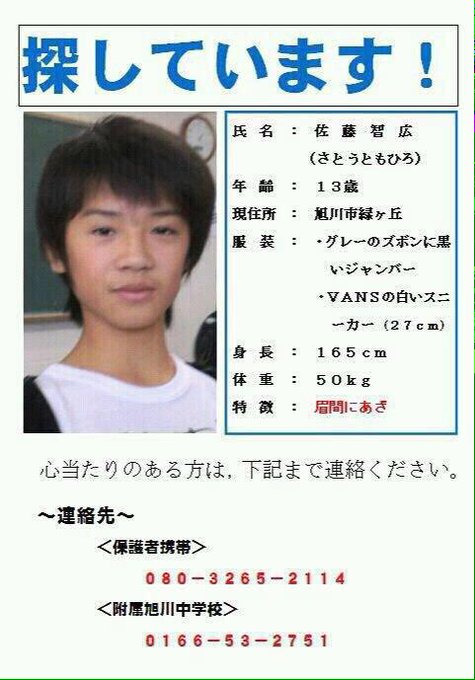 探しています！
氏　名　：　佐　藤　智　広
（さとうともひろ）
年　齢　：　１３歳
現住所　：　旭川市緑ヶ丘
服　装　：　・グレーのズボンに黒
いジャンバー
・ＶＡＮＳの白いスニ
ーカー（２７ｃｍ）
身　長　：　１６５ｃｍ
体　重　：　５０ｋｇ
特　徴　：　眉間にあざ
心当たりのある方は，下記まで連絡ください。
～連絡先～
＜保護者携帯＞
０８０－３２６５－２１１４
＜附属旭川中学校＞
０１６６－５３－２７５１